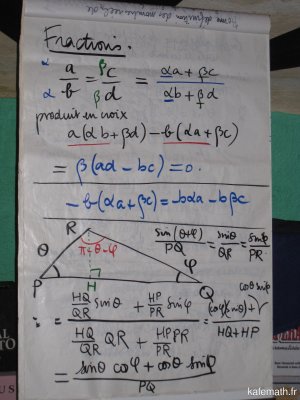 Fractions.
α a/b = β c/β d = (αa + βc)/(αb + βd)
α
produit en croix
a(αb + βd) − b(αa + βc)
= β(ad − bc) = 0.
−b(αa + βc) = −bαa − bβc
R
sin(θ+φ)/PQ = sinθ/QR = sinφ/PR
θ
π−θ−φ
φ
P
H
Q
cosθ sinφ
= (HQ/QR sinθ + HP/PR sinφ)/(HQ/QR QR + HP/PR PR) = (cosφ(sinθ) +)/(HQ+HP)
= (sinθ cosφ + cosθ sinφ)/PQ
katemath.fr